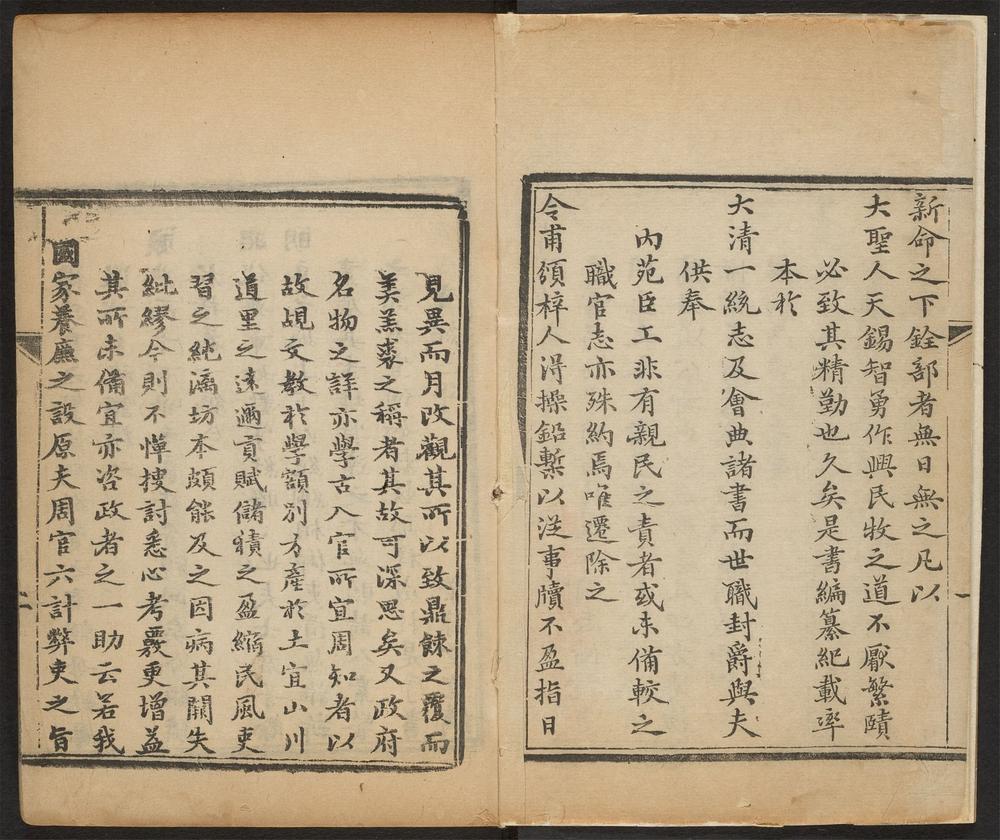 新命之下銓部者無日無之凡以
大聖人天錫智勇作興民牧之道不厭繁賾
必致其精勤也久矣是書編纂紀載率
本於
大清一統志及會典諸書而世職封爵與夫
供奉
內苑臣工非有親民之責者或未備較之
職官志亦殊約焉唯遷除之
令甫頒梓人得操鉛槧以從事牘不盈指日
見異而月改觀其所以致鼎餗之覆而
美羔裘之稱者其故可深思矣又政府
名物之詳亦學古入官所宜周知者以
故覘文教於學額別方產於土宜山川
道里之遠邇貢賦儲積之盈縮民風吏
習之純漓坊本頗能及之因病其闕失
紕繆今則不憚摟討悉心考覈更增益
其所未備宜亦咨政者之一助云若我
國家養廉之設原夫周官六計弊吏之旨
一
二